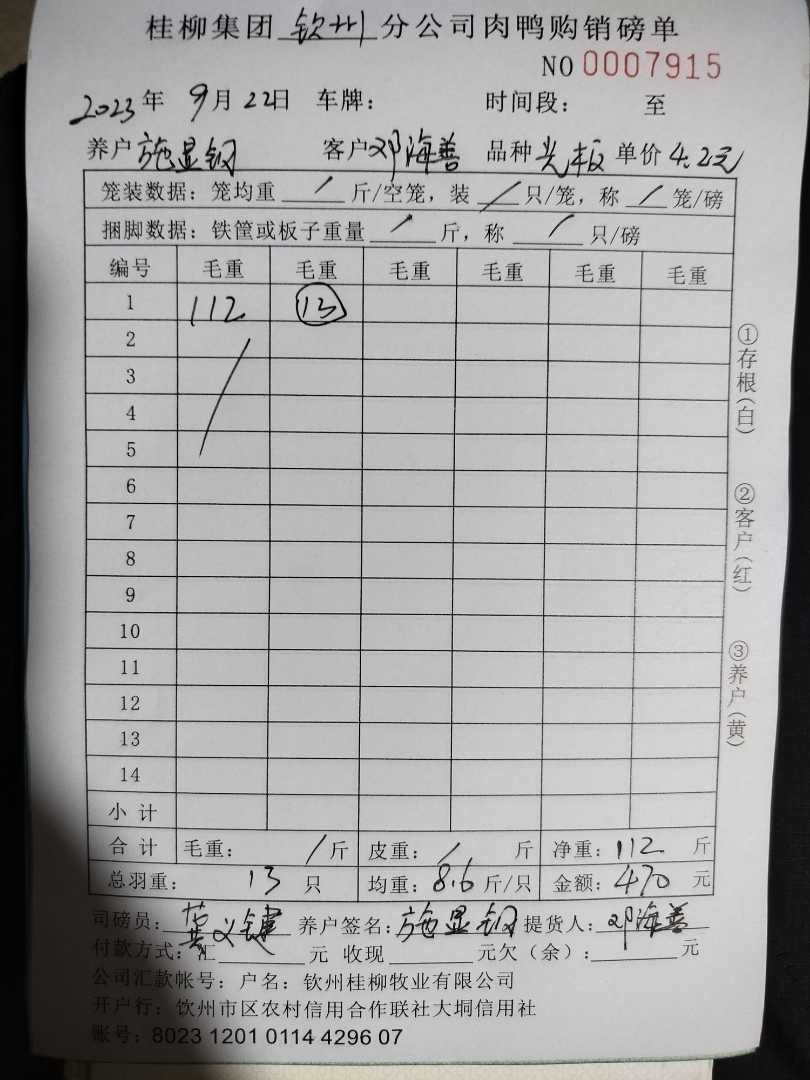 桂柳集团 钦州 分公司肉鸭购销磅单
NO 0007915
2023年 9月 22日 车牌: 时间段: 至
养户 施显钢 客户 邓海善 品种 光板 单价 4.2元
笼装数据: 笼均重 / 斤/空笼, 装 / 只/笼, 称 / 笼/磅
捆脚数据: 铁筐或板子重量 / 斤, 称 / 只/磅
编号 毛重 毛重 毛重 毛重 毛重 毛重
1 112 13
2
3
4
5
6
7
8
9
10
11
12
13
14
小计
合计 毛重: / 斤 皮重: / 斤 净重: 112 斤
总羽重: 13 只 均重: 8.6 斤/只 金额: 470 元
司磅员: 黄义键 养户签名: 施显钢 提货人: 邓海善
付款方式: 汇 元 收现 元欠(余): 元
公司汇款帐号: 户名: 钦州桂柳牧业有限公司
开户行: 钦州市区农村信用合作联社大垌信用社
账号: 8023 1201 0114 4296 07
①存根(白)
②客户(红)
③养户(黄)